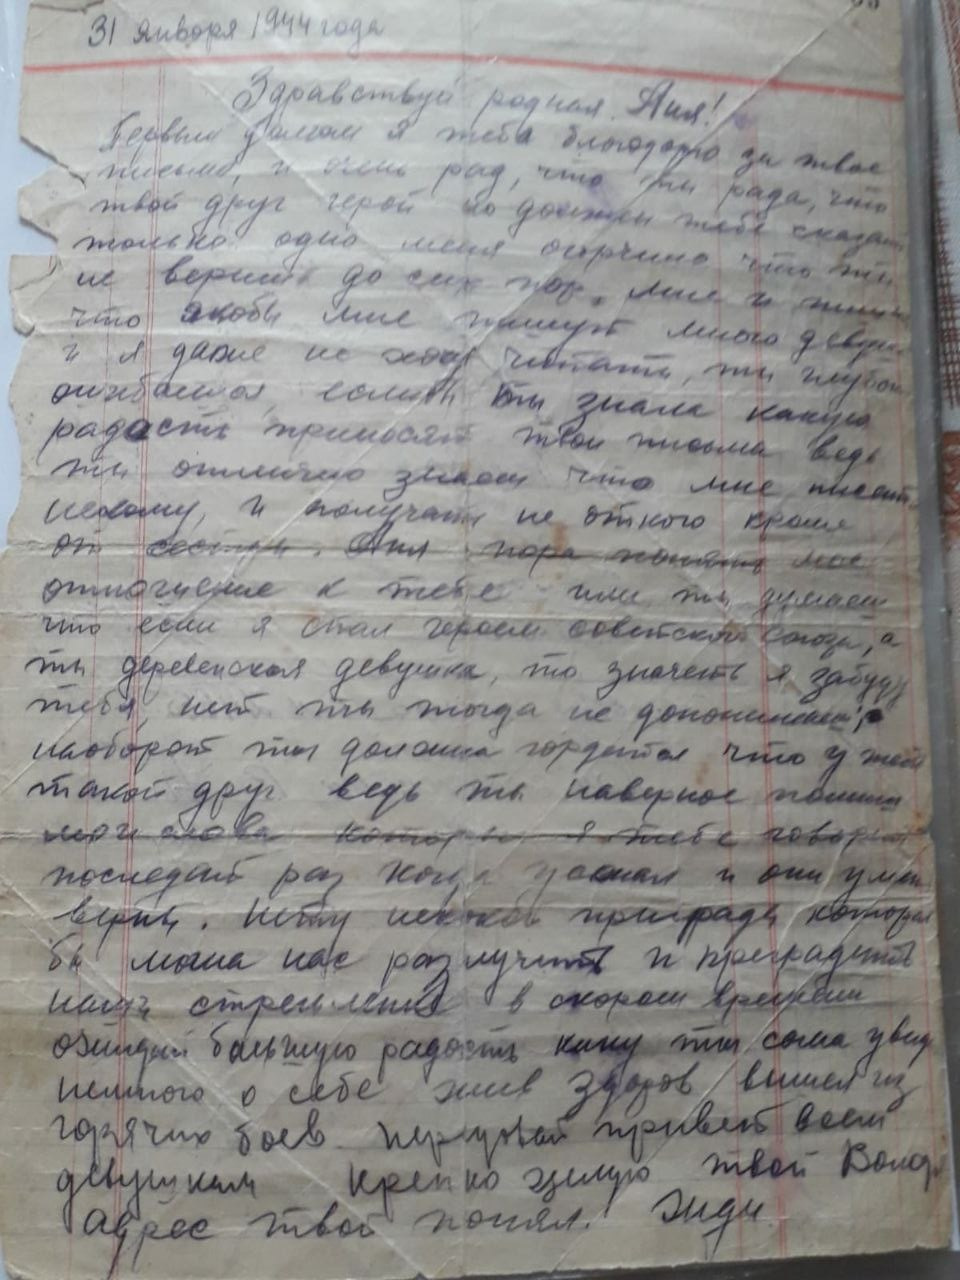 31 января 1944 года
Здравствуй родная Аня!
Первым долгом я тебя благодарю за твое
письмо, и очень рад, что ты рада, что
твой друг герой но должен тебе сказать
только одно меня огорчило что ты
не веришь до сих пор, мне и
что якобы мне пишут много девуш
и я даже не хочу читать, ты глубок
ошибаешся, если бы ты знала какую
радость приносят твои письма ведь
ты отлично знаеш что мне писать
некому, и получать не откого кроме
от сестры. Аня пора понять мое
отношение к тебе или ты думаеш
что если я стал героем советского союза, а
ты деревенская девушка, то значеть я забуду
тебя, нет ты тогда не
наоборот ты должна гордется что у тебя
такой друг ведь ты наверное помниш
мои слова которы я тебе говорил
последит раз когда уезжал и они
верны. Нету некакой преграды котора
бы могла нас разлучить и преградить
наши стремленя в скором времени
ожидай большую радость каку ты сома увид
немного о себе жив здоров вышел из
горячих боев передовай привет всем
девушкам крепко целую твой Володя
Адрес твой понял. Жди.